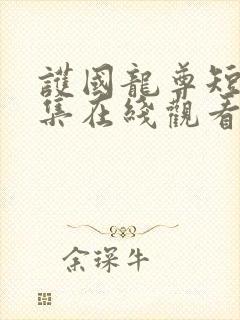 護國龍尊短
集在綫觀看
余琛牛